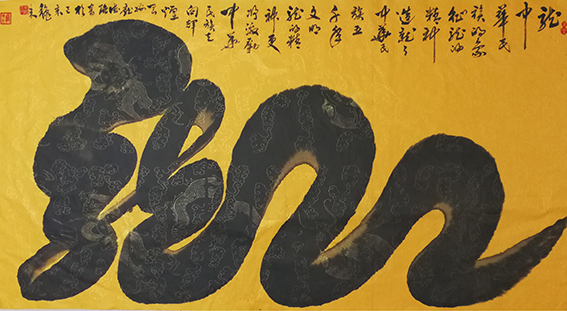 龍
中
華民
族的象
征龍的
精神
造就了
中華民
族五
千年
文明
龍的精
神更
將激勵
中華
民族走
向輝
煌